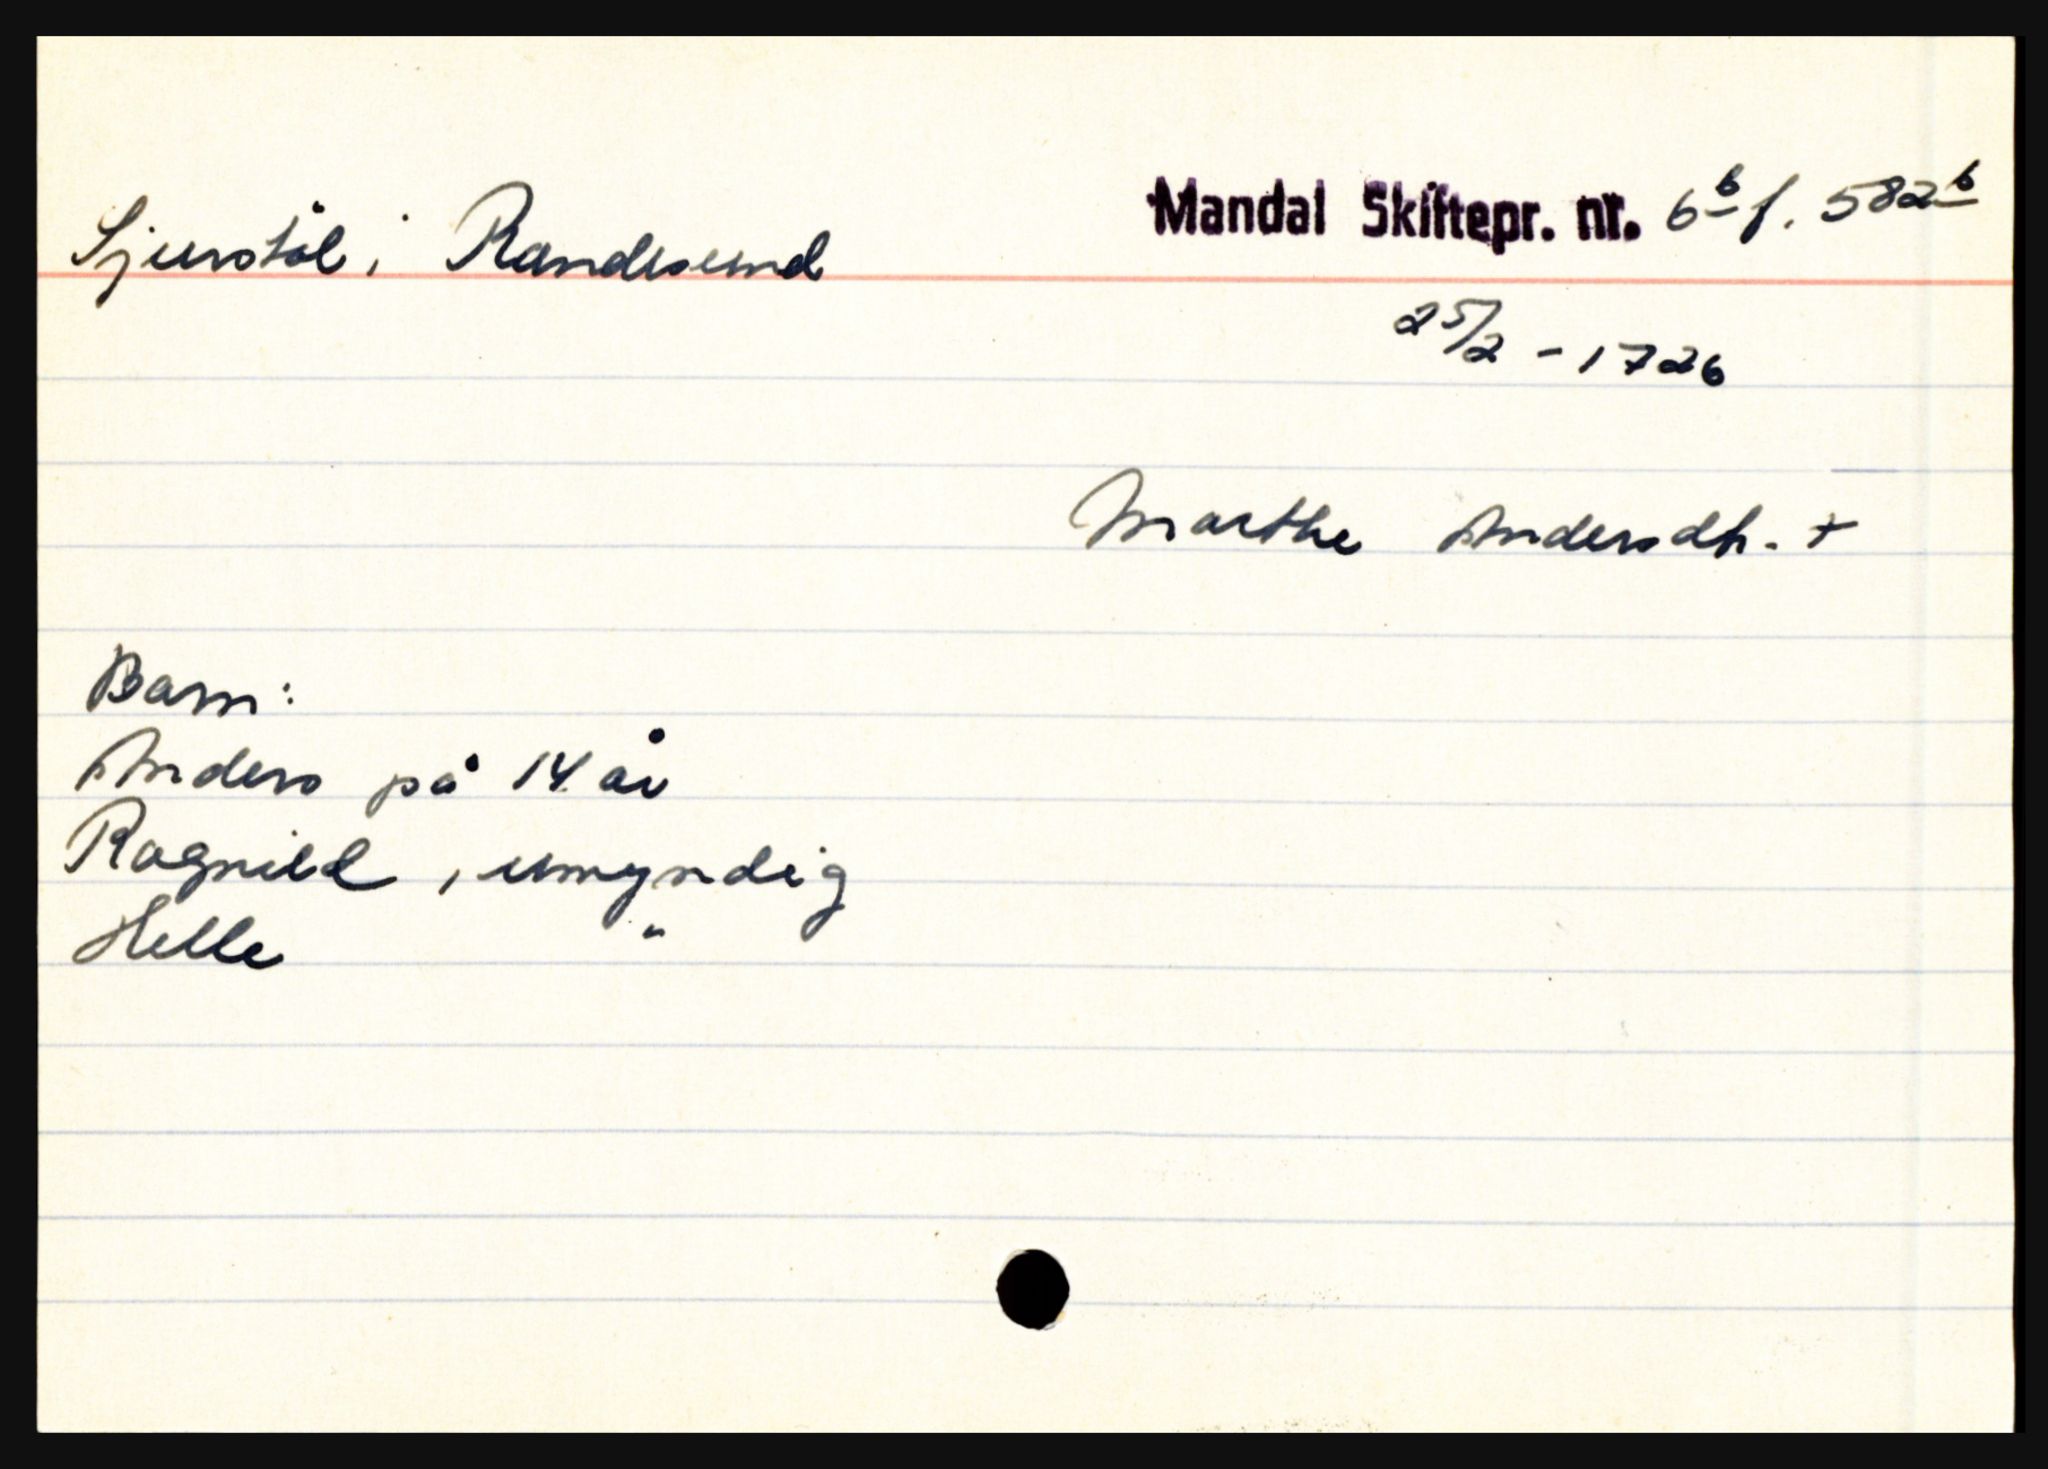 Sjurstöl i Randesund
Mandal Skiftepr. nr. 6b f. 582b
25/2 - 1726
Marthe Andersdtr. +
Barn:
Anders på 14 år
Ragnild, umyndig
Helle "